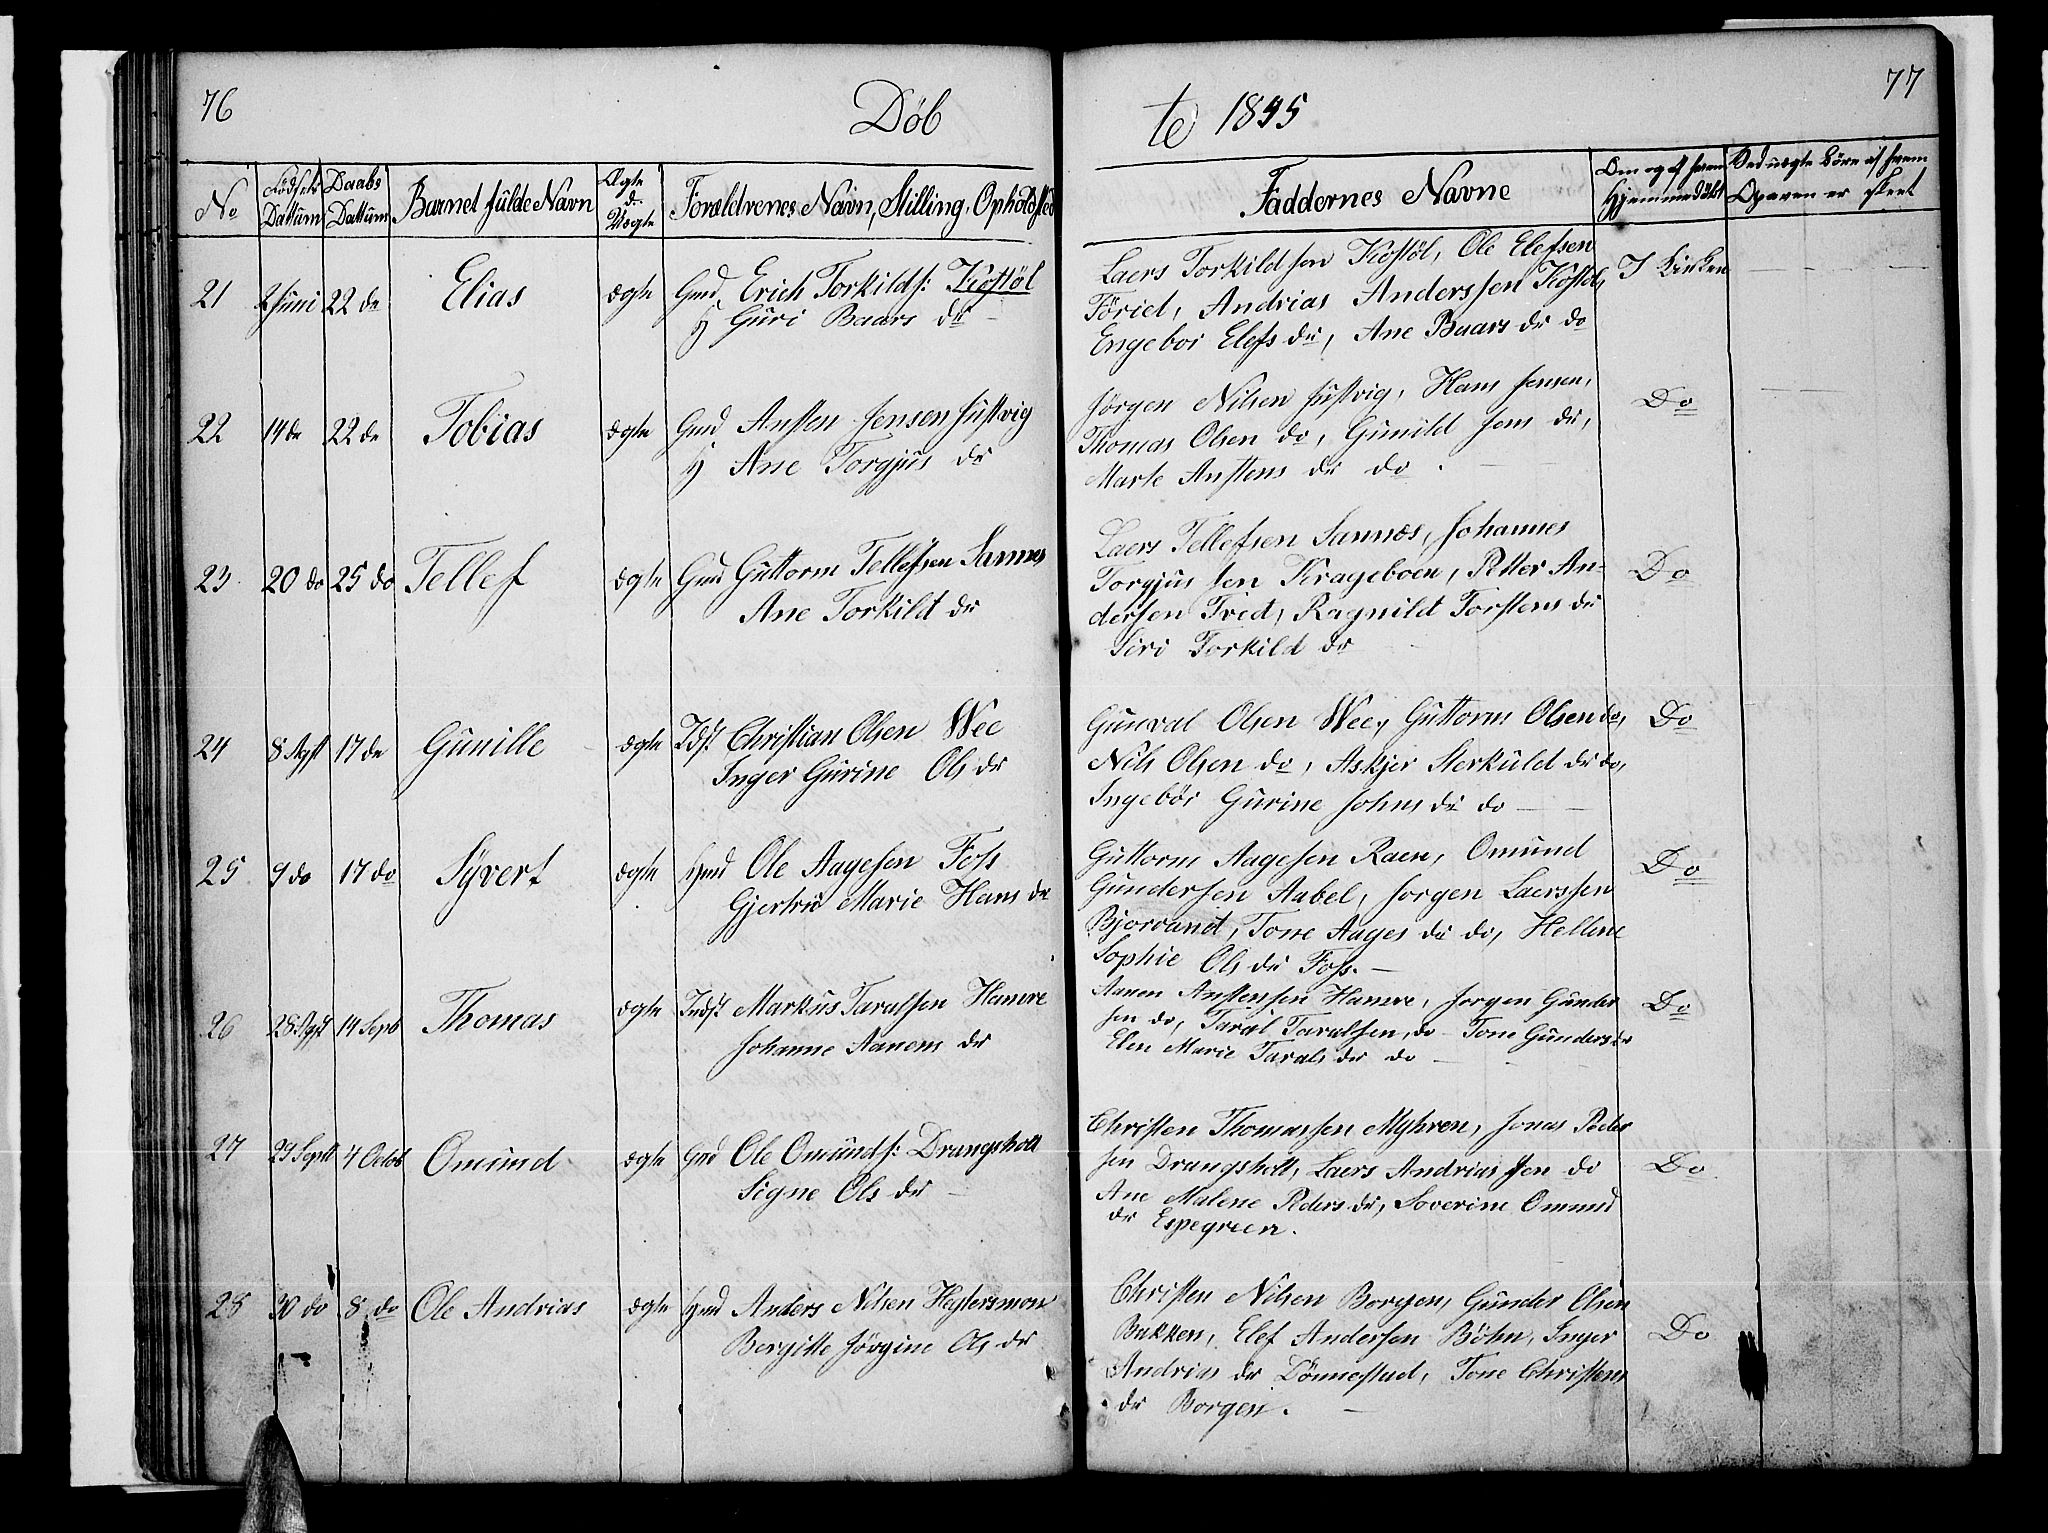 76
Döb
te 1845
77
No
Födsels Dattum
Daabs Dattum
Barnet fulde Navn
Ægte & Uægte
Forældrenes Navn, Stilling, Opholdsted
Faddernes Navne
Om og af hvem Hjemmedöbt
Ved uægte Börn af hvem Opgaven er skeet
21 2 Juni 22 de Elias ægte Gmd Erich Torkilds: Kostöl
Guri Baars dr
Laers Torkildsen Kostöl, Ole Elefsen
Töriet, Andrias Anderssen Kostöl,
Engebor Elefs dr, Ane Baars dr do
I Kirken
22 14 de 22 de Tobias ægte Gmd Ansten Jensen Justvig
Ane Torgjus dr
Jörgen Nilsen Justvig, Hans Jensen,
Thomas Olsen do, Gunild Jens dr,
Marte Anstens dr do
Do
23 20 do 25 do Tellef ægte Gmd Guttorm Tellefsen Sannes
Ane Torkild dr
Laers Tellefsen Sannæs, Johannes
Torgjussen Krageboen, Petter An-
dersen Tved, Ragnild Torstens dr
Siri Torkild dr
Do
24 8 Agst 17 de Gunille ægte Idst Christian Olsen Wee
Inger Gurine Ols dr
Gunval Olsen Wee, Guttorm Olsen do,
Nils Olsen do, Askjer Sterkuld dr do,
Ingebör Gurine Johns dr do
Do
25 9 do 17 do Syvert ægte Hmd Ole Aagesen Foss
Gjertru Marie Hans dr
Guttorm Aagesen Raen, Omund
Gundersen Aabel, Jorgen Laerssen
Bjorvandt, Tone Aages dr do, Hellene
Sophie Ols dr Foss.
Do
26 28 Agst 14 Septb Thomas ægte Indst Markus Taralsen Hamre
Johanne Aanens dr
Aanen Anstensen Hamre, Jorgen Gunder
sen do, Taral Taralsen, do Tone Gunders dr
Elen Marie Tarals dr do
Do
27 29 Septb 4 Octob Omund ægte Gmd Ole Omunds: Drangsholt
Signe Ols dr
Christen Thomassen Myhren, Jonas Peder
sen Drangsholt, Laers Andriassen do
Ane Malene Peders dr, Soverine Omund
dr Espegreen.
Do
28 30 do 8 do Ole Andrias ægte Hmd Anders Nilsen
Bergitte Jörgine Ols dr
Christen Nilsen Borgen, Gunder Olsen
Bakken, Elef Andersen Böhn, Inger
Andrias dr Dönnestad, Tone Christens
dr Borgen.
Do